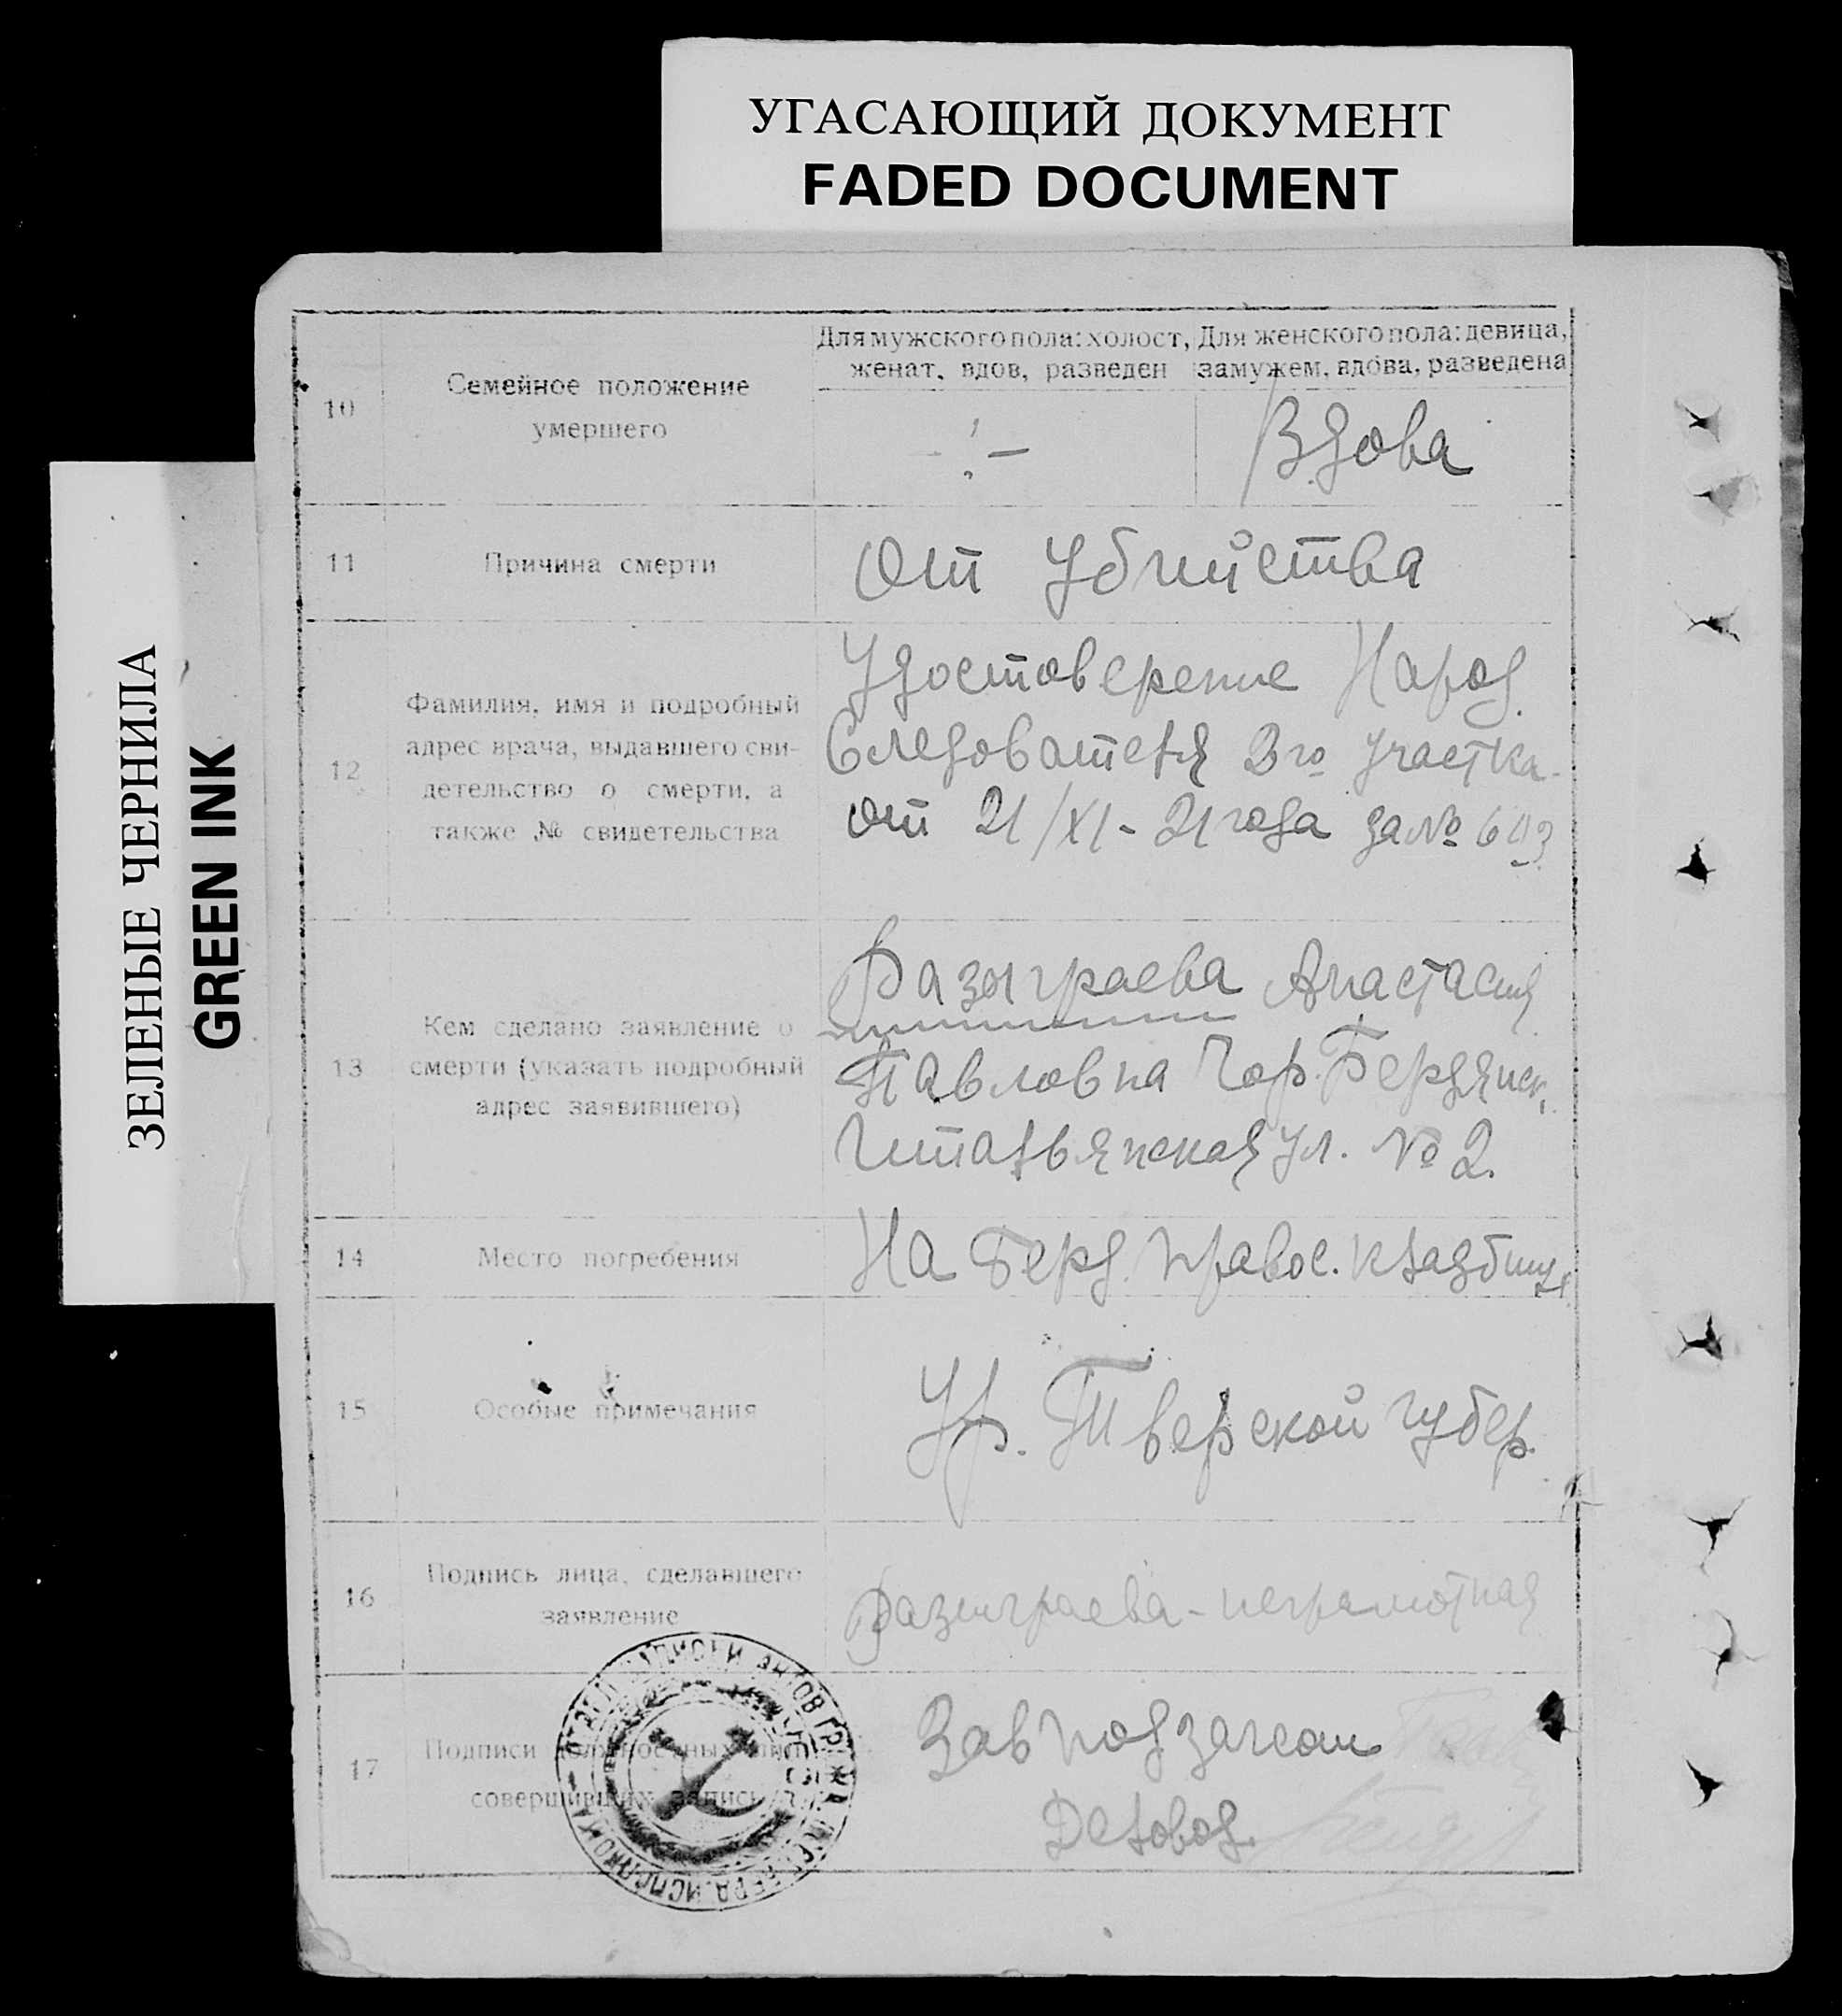 УГАСАЮЩИЙ ДОКУМЕНТ
FADED DOCUMENT
ЗЕЛЕНЫЕ ЧЕРНИЛА
GREEN INK
10
Семейное положение
умершего
Для мужского пола: холост,
женат, вдов, разведен
Для женского пола: девица,
замужем, вдова, разведена
Вдова
11
Причина смерти
От убийства
12
Фамилия, имя и подробный
адрес врача, выдавшего сви-
детельство о смерти, а
также № свидетельства
Удостоверение Народ.
Следователя 3го участка
от 21/XI - 21 года за №
13
Кем сделано заявление о
смерти (указать подробный
адрес заявившего)
Разыграева Анастасия
Павловна Гор. Бердянск,
Итальянская ул. № 2.
14
Место погребения
На Берд. Правос. кладбище
15
Особые примечания
Ур. Тверской губер.
16
Подпись лица, сделавшего
заявление
Разыграева - неграмотная
17
Подписи должностных лиц
совершивших запись
Завподзагсом
Деловод.